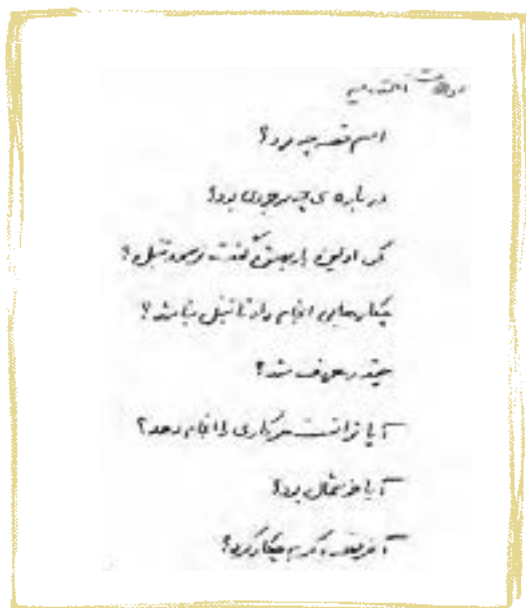 سوالات
اسم قصه چه بود؟
درباره ی چه موجودی بود؟
کی اولین بار بهش گفت تنبل؟
چکارهایی انجام داد تا تنبل نباشد؟
چقدر موفق شد؟
آیا توانست هر کاری را انجام دهد؟
آیا خوشحال بود؟
آخر قصه چکار کرد؟